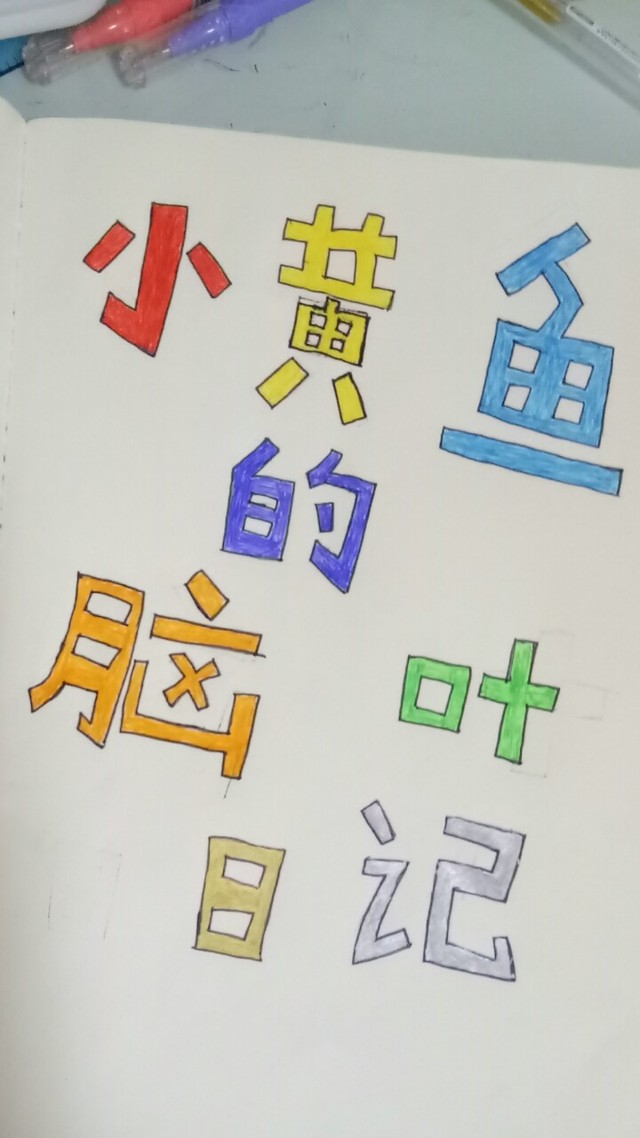 小黄鱼
的
脑叶
日记